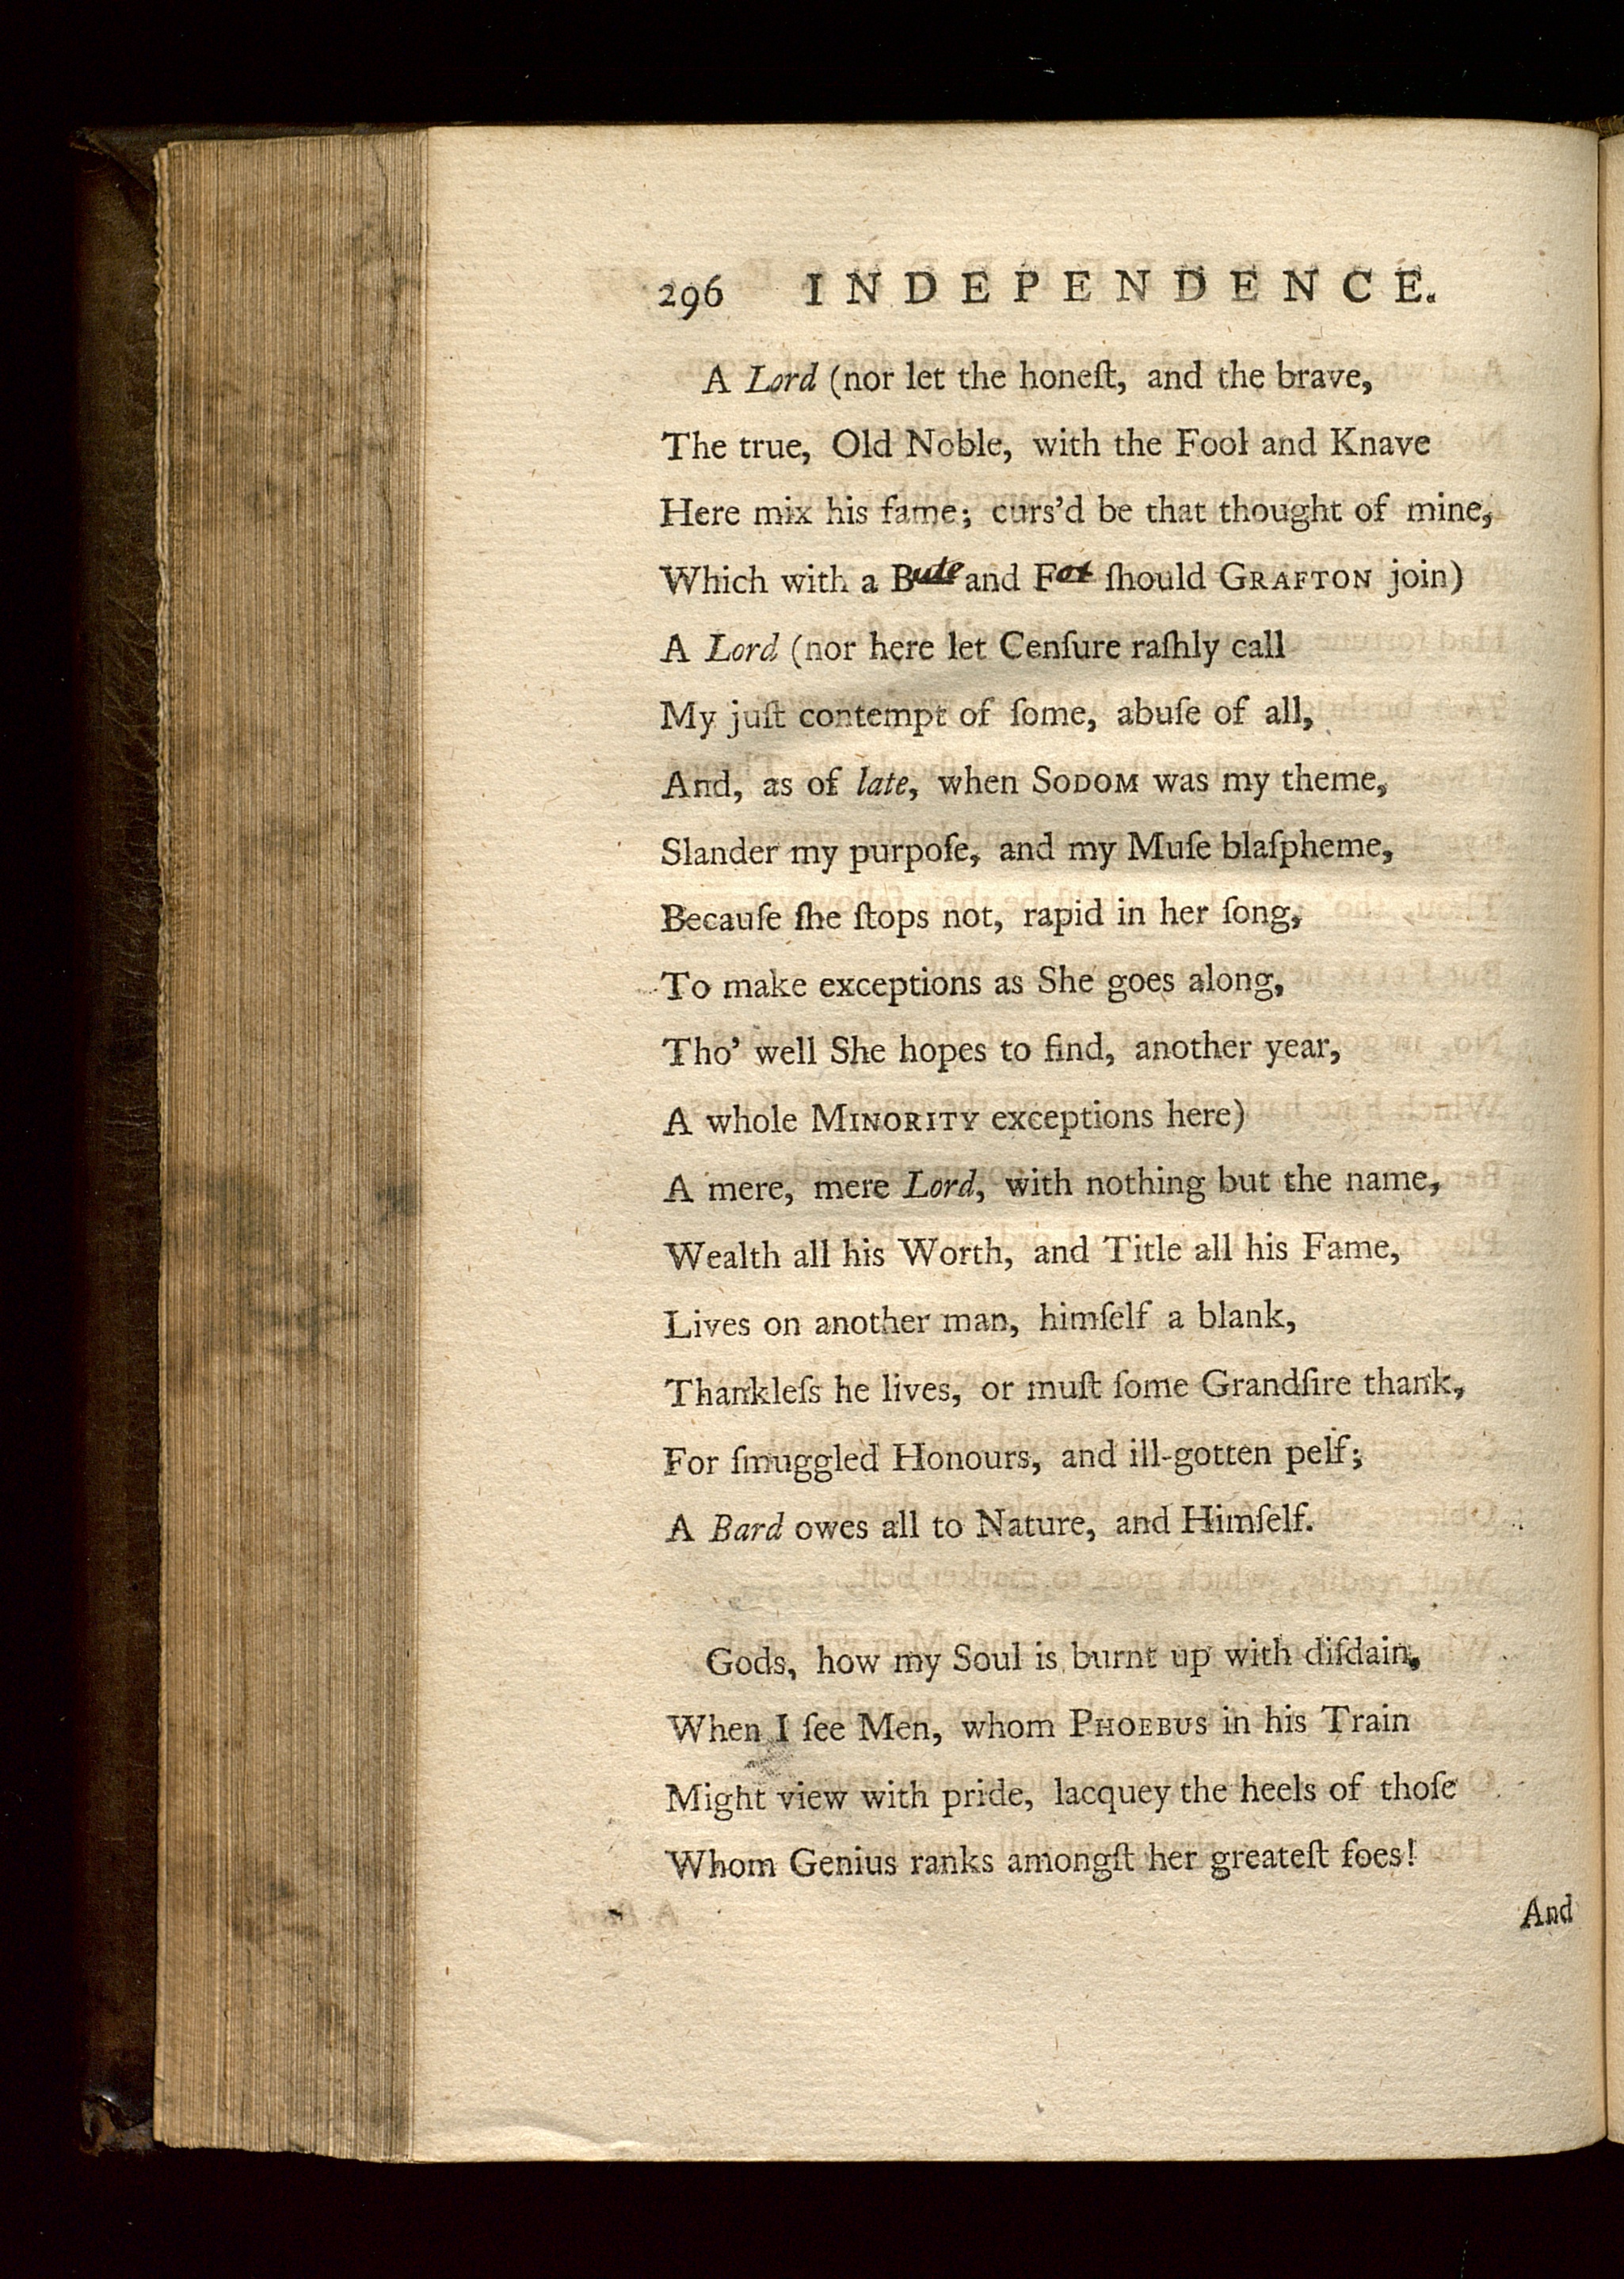 296 INDEPENDENCE.
A Lord (nor let the honeſt, and the brave,
The true, Old Noble, with the Fool and Knave
Here mix his fame; curs'd be that thought of mine,
Which with a Bute and Fox ſhould GRAFTON join)
A Lord (nor here let Cenſure raſhly call
My juſt contempt of ſome, abuſe of all,
And, as of late, when SODOM was my theme,
Slander my purpoſe, and my Muſe blaſpheme,
Becauſe ſhe ſtops not, rapid in her ſong,
To make exceptions as She goes along,
Tho' well She hopes to find, another year,
A whole MINORITY exceptions here)
A mere, mere Lord, with nothing but the name,
Wealth all his Worth, and Title all his Fame,
Lives on another man, himſelf a blank,
Thankleſs he lives, or muſt ſome Grandſire thank,
For ſmuggled Honours, and ill-gotten pelf;
A Bard owes all to Nature, and Himſelf.
Gods, how my Soul is burnt up with diſdain,
When I ſee Men, whom PHOEBUS in his Train
Might view with pride, lacquey the heels of thoſe
Whom Genius ranks amongſt her greateſt foes!
And